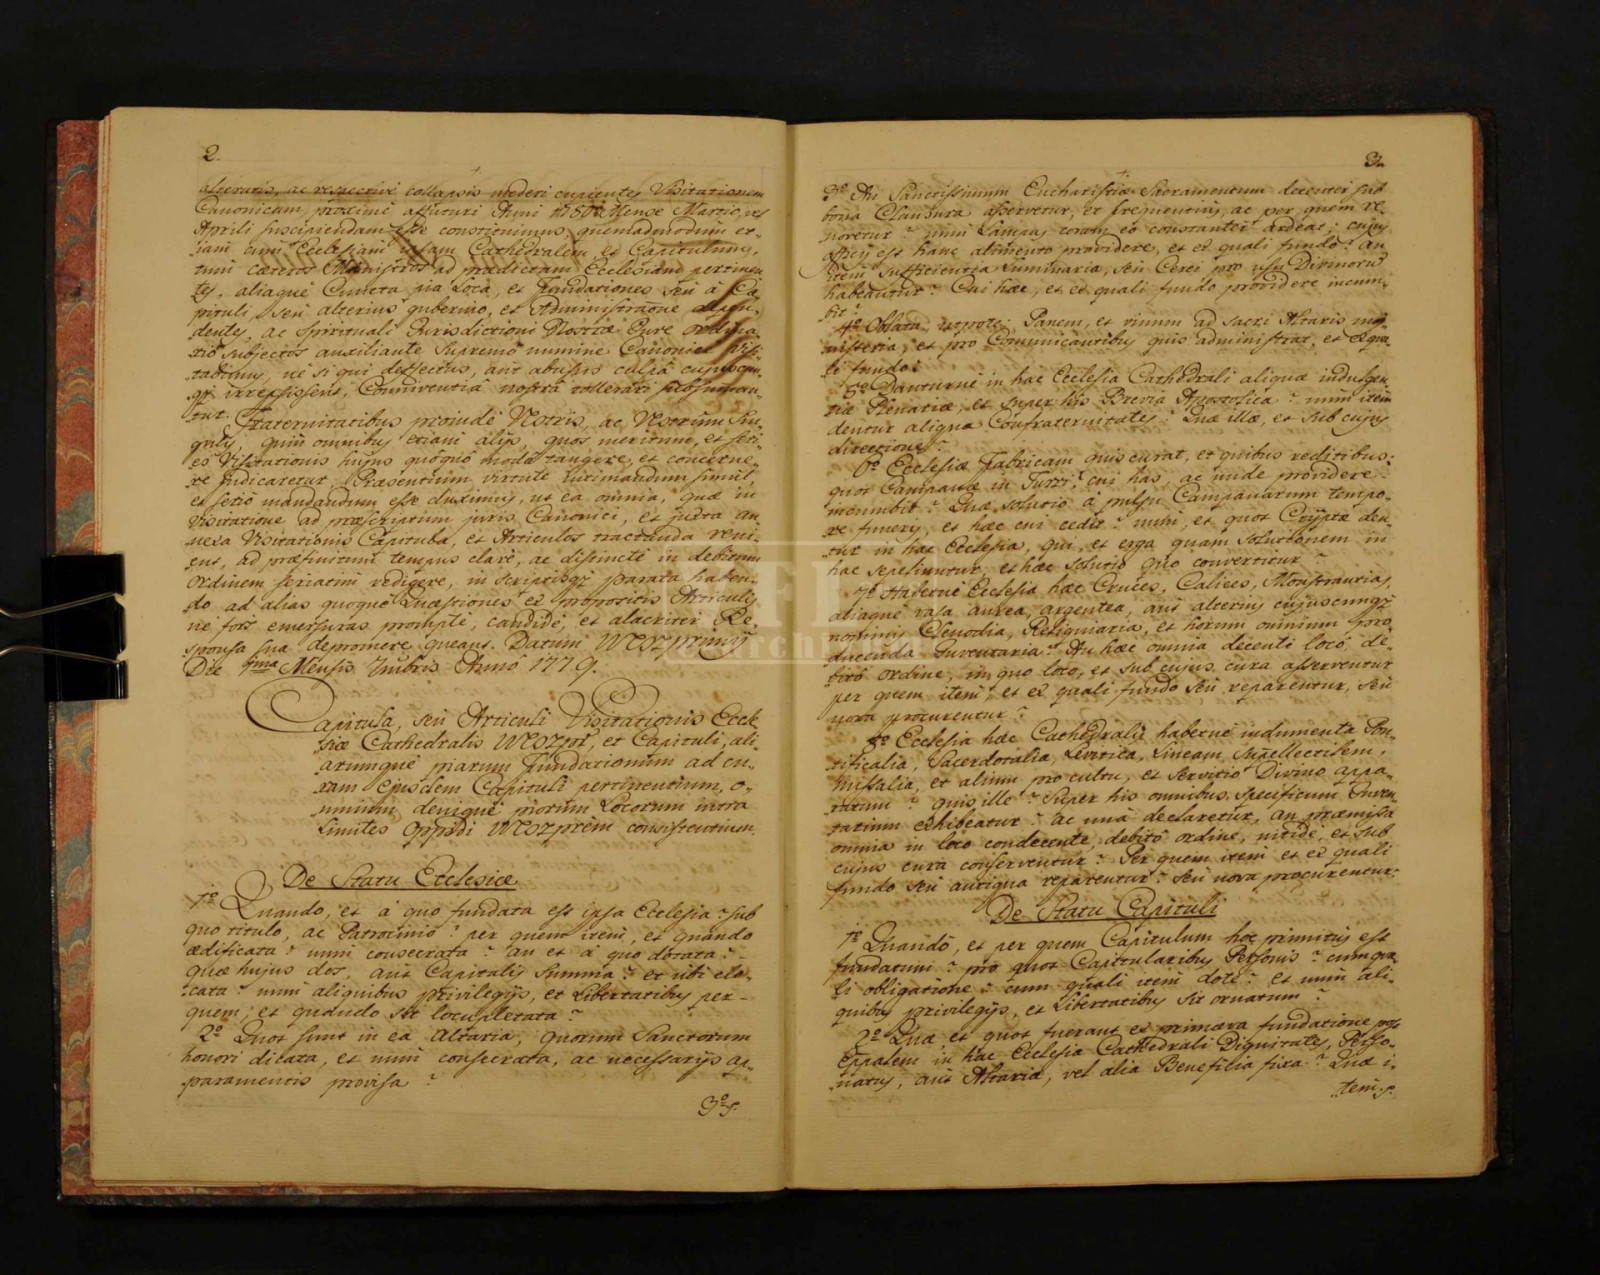 2.
alteratis, ac respective collapsis mederi cupientes Visitationem
Canonicam proximè affuturi Anni 1780 Mense Martio, vel
Aprili suscipiendam esse constituimus, quemadmodum et„
„iam cum Ecclesiam ipsam Cathedralem, et Capitulum,
tum caeteros Ministros ad praedictam Ecclesiam pertinen
tes, aliaque Cuncta pia Loca, et Fundationes seu à Ca„
pituli, seu alterius guberno, et Administraõne depen„
dentes, ac spirituali Jurisdictioni Nostrae Jure ordina
rio subjectos auxiliante Supremo numine Canonicè visi„
tabimus, ne si qui deffectus, aut abusus culpâ cujuscun„
q3 irrepsissent, Conniventiâ nostrâ tollerari
tur. Fraternitatibus proinde Vestris, ac Vestrûm Sin„
gulis, quin omnibus etiam alijs, quos meritum, et seri„
es Visitationis hujus quôquô modô tangere, et concerne„
re judicaretur, Praesentium virtute intimandum simul,
et seriò mandandum esse duximus, ut ea omnia, quae in
Visitatione ad praescriptum juris Canonici, et juxta an„
nexa Visitationis Capitula, et Articulos tractanda veni„
ent, ad praefinitum tempus clarè, ac distinctè in debitum
Ordinem seriatim redigere, in scriptisq3 parata haben„
do ad alias quoque Quaestiones ex propositis Articulis
nè fors emersuras promptè, candidè, et alacriter Re„
sponsa sua depromere queant. Datum Weszprimij
Die 7ma Mensis Xmbris Anno 1779.
Capitula, seu Articuli Visitationis Eccle
siae Cathedralis Weszpr, et Capituli, ali„
arumque piarum Fundationum ad cu„
ram Ejusdem Capituli pertinentium, o„
mnium denique piorum Locorum intra
Limites Oppidi Weszprèm consistentium.
De Statu Ecclesiae
1o Quando, et à quo fundata est ipsa Ecclesia? sub
quo titulo, ac Patrocinio? per quem item, et quando
aedificata? num consecrata? an et à quo dotata?
quae hujus dos, aut Capitalis Summa? et ubi elo„
cata? num aliquibus privilegijs, et Libertatibus per
quem, et quando sit locupletata?
2o Quot sunt in ea Altaria, quorum Sanctorum
honori dicata, et num consecrata, ac necessarijs ap„
paramentis provisa?
3o
3.
3o An Sanctissimum Eucharistiae Sacramentum decenter sub
bona Clausura asservetur, et frequentius, ac per quem re„
novetur? num Lampas coram eo constanter ardeat, cujus
officij est hanc alimento providere, et ex quali fundo? an
item sufficientia Luminaria, seu Cerei pro usu Divinorũ
habeantur? Cui haec, et ex quali fundo providere incum„
bit?
4o Oblata, utpote, Panem, et vinum ad sacri Altaris mi„
nisteria, et pro Communicantibus quis administrat, et ex qua„
li fundo?
5o Danturne in hac Ecclesia Cathedrali aliquae indulgen„
tiae Plenariae, et super his Brevia Apostolica? num item
dentur aliquae Confraternitates? Quae illae, et sub cujus
directione?
6o Ecclesiae Fabricam quis curat, et quibus reditibus:
quot Campanae in Turri, cui has, ac unde providere
incumbit? Quae solutio à pulsu Campanarum tempo„
re funeris, et haec cui cedit? num, et quot Cryptae den„
tur in hac Ecclesia, qui, et erga quam solutionem in
hac sepeliuntur, et haec solutio quo convertitur?
7o Habetne Ecclesia haec Cruces, Calices, Monstrantias,
aliaque vasa aurea, argentea, aut alterius cujuscunq3
nominis Clenodia, Reliquiaria, et horum omnium pro„
ducenda Inventaria? An haec omnia decenti locô, de„
bitô ordine, in quo loco, et sub cujus cura asserventur
per quem item, et ex quali fundo seu reparentur, seu
nova procurentur?
8o Ecclesia haec Cathedralis habetne indumenta Pon„
tificalia, Sacerdotalia, Levitica, Lineam Supellectilem,
Missalia, et alium pro cultu, et servitio Divino appa„
ratum? quis ille? Super his omnibus specificum Inven„
tarium exhibeatur? ac unà declaretur, an praemissa
omnia in loco condecente, debitô ordine, nitidè, et sub
cujus cura conserventur? Per quem item et ex quali
fundo seu antiqua reparentur? seu nova procurentur?
De Statu Capituli
1o Quandô, et per quem Capitulum hoc primitùs est
fundatum? pro quot Capitularibus Personis? cum qua„
li obligatione? cum quali item dote? et num ali„
quibus privilegijs, et Libertatibus sit ornatum?
2o Quae et quot fuerant ex primaeva fundatione post
Eppalem in hac Ecclesia Cathedrali Dignitates, Perso„
natus, aut Altaria, vel alia Beneficia fixa? Quae i„
„tem